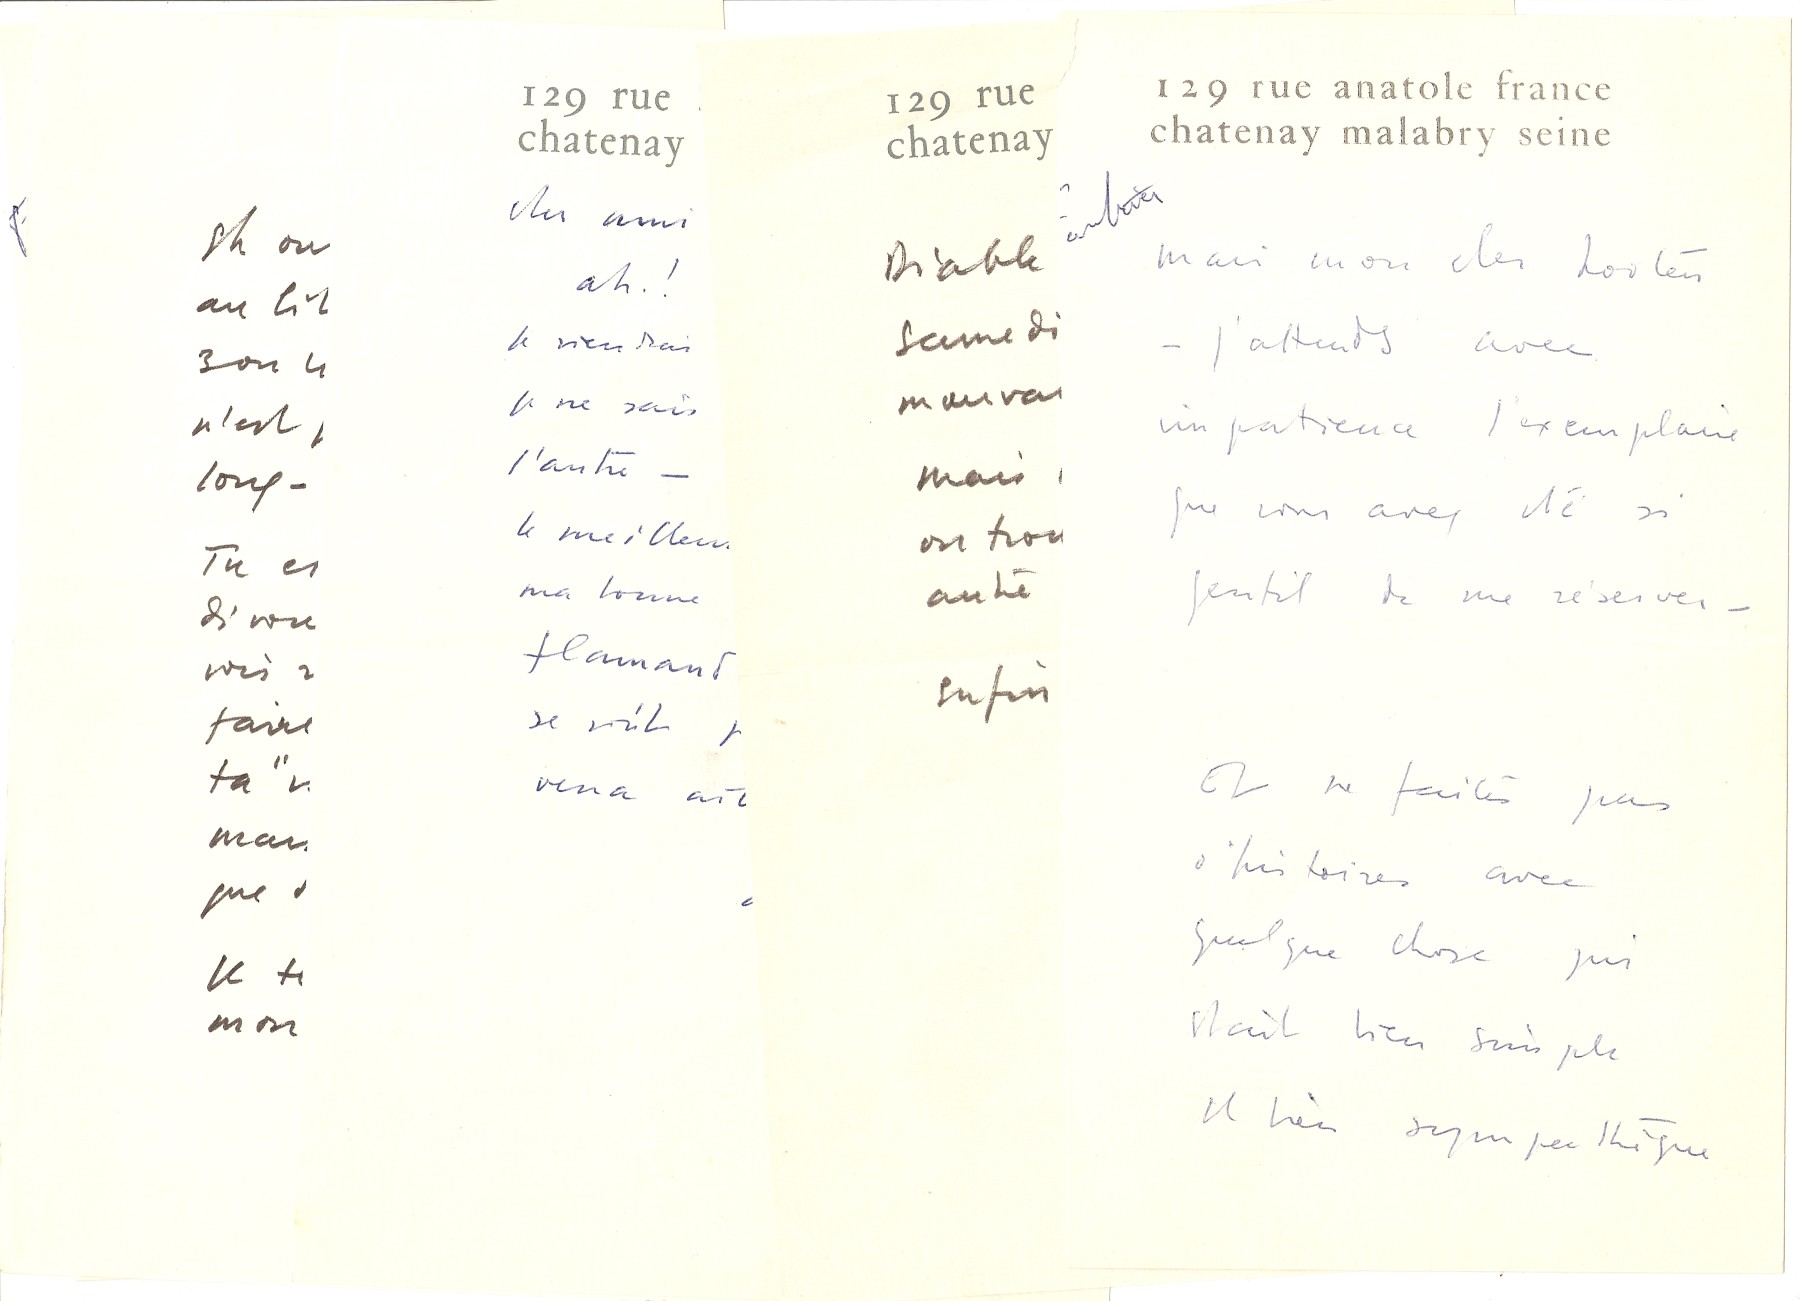 oh ou
au lit
n'est
long -
Tu es
divorc
vois
faire
ta "
mar
que d
Je te
mon
129 rue
chatenay
cher ami
ah.!
Je viendrai
je ne sais
l'autre —
le meilleur
ma bonne
flamand
se voit p
verra
129 rue
chatenay
Diable
Samedi
mauvai
mais
on trou
autre
enfin
129 rue anatole france
chatenay malabry seine
mais mon cher
- j'attends avec
impatience l'exemplaire
que vous avez été si
gentil de me réserver —
Et ne faites pas
d'histoires avec
quelque chose qui
était bien simple
et très sympathique